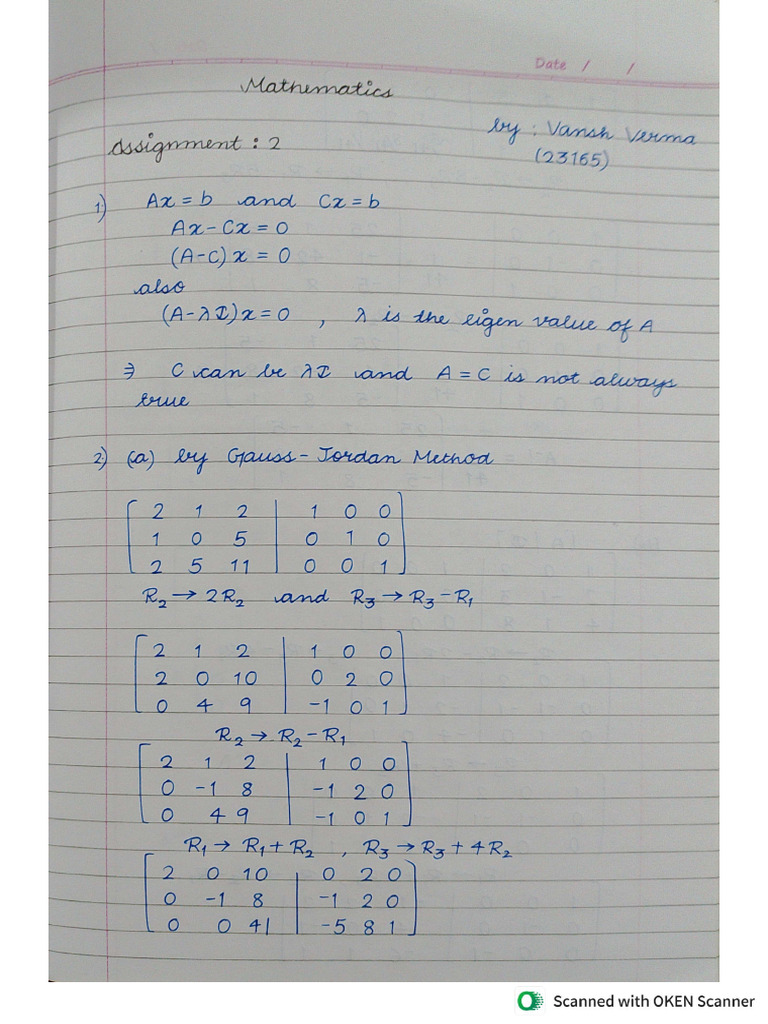 Date / /
Mathematics
Assignment : 2
by : Vansh Verma
(23165)
1) Ax = b and Cx = b
Ax - Cx = 0
(A-C) x = 0
also
(A-λI)x = 0 , λ is the eigen value of A
⇒ C can be λI and A = C is not always
true
2) (a) by Gauss-Jordan Method
2 1 2 | 1 0 0
1 0 5 | 0 1 0
2 5 11 | 0 0 1
R2 → 2R2 and R3 → R3-R1
2 1 2 | 1 0 0
2 0 10 | 0 2 0
0 4 9 | -1 0 1
R2 → R2-R1
2 1 2 | 1 0 0
0 -1 8 | -1 2 0
0 4 9 | -1 0 1
R1 → R1+R2 , R3 → R3+4R2
2 0 10 | 0 2 0
0 -1 8 | -1 2 0
0 0 41 | -5 8 1
Scanned with OKEN Scanner